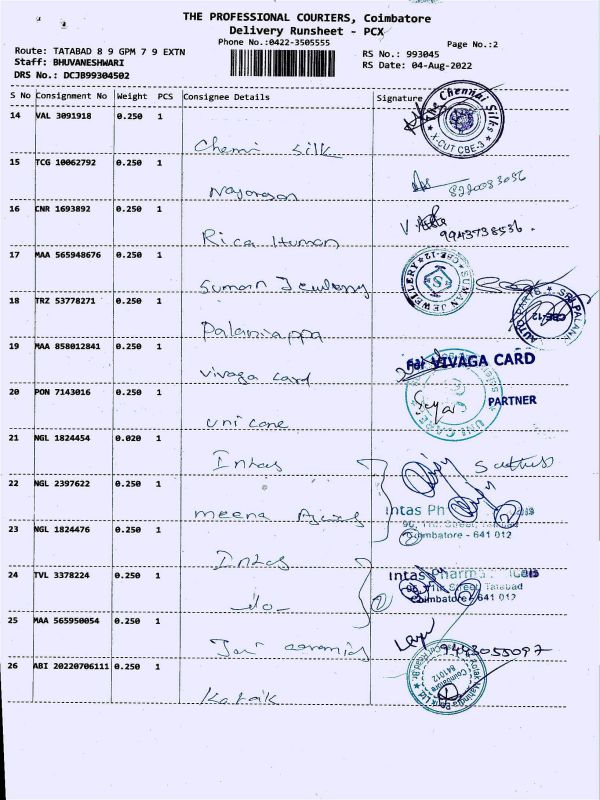 THE PROFESSIONAL COURIERS, Coimbatore
Delivery Runsheet - PCX
Phone No.:0422-3505555
Page No.:2
Route: TATABAD 8 9 GPM 7 9 EXTN
RS No.: 993045
Staff: BHUVANESHWARI
RS Date: 04-Aug-2022
DRS No.: DCJB99304502
S No Consignment No Weight PCS Consignee Details Signature
14 VAL 3091918 0.250 1
The Chennai Silks
X-CUT CBE-3
Chenni Silk
15 TCG 10062792 0.250 1
Nagarajan
16 CNR 1693892 0.250 1
9943738536.
Rica Human
17 MAA 565948676 0.250 1
SUMAN JEWELLERY CBE-12
Suman Jewlerry
18 TRZ 53778271 0.250 1
AUTO PARTS SRI PALANI
CBE-12
Palaniappa
19 MAA 858012841 0.250 1
For VIVAGA CARD
Vivaga Card
20 PON 7143016 0.250 1
PARTNER
unicone
21 NGL 1824454 0.020 1
Intas
22 NGL 2397622 0.250 1
Intas Ph
meena
96, 11th Street, Tatabad
Coimbatore - 641 012
23 NGL 1824476 0.250 1
Intas
24 TVL 3378224 0.250 1
Intas Pharma
96, 11th Street, Tatabad
Coimbatore - 641 012
-do-
25 MAA 565950054 0.250 1
9443055097
Jai ceramics
26 ABI 20220706111 0.250 1
Kotak Mahindra Bank Ltd.
Coimbatore
641012
Kotak